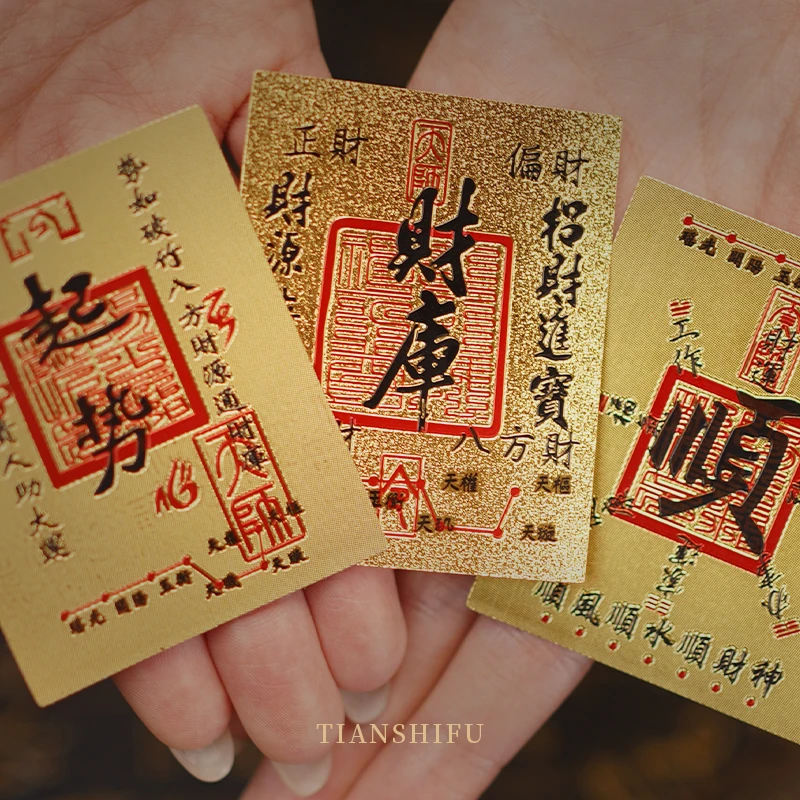 起勢
勢如破竹八方財源通財庫
貴人助大運
天師
瑤光 開陽 玉衡 天權 天璣 天璇 天樞
正財
偏財
天師
財庫
財源
招財進寶
八方財
玉衡 天權 天璣 天璇 天樞
瑤光 開陽 玉
工作
財運
順
順風順水順財神
TIANSHIFU